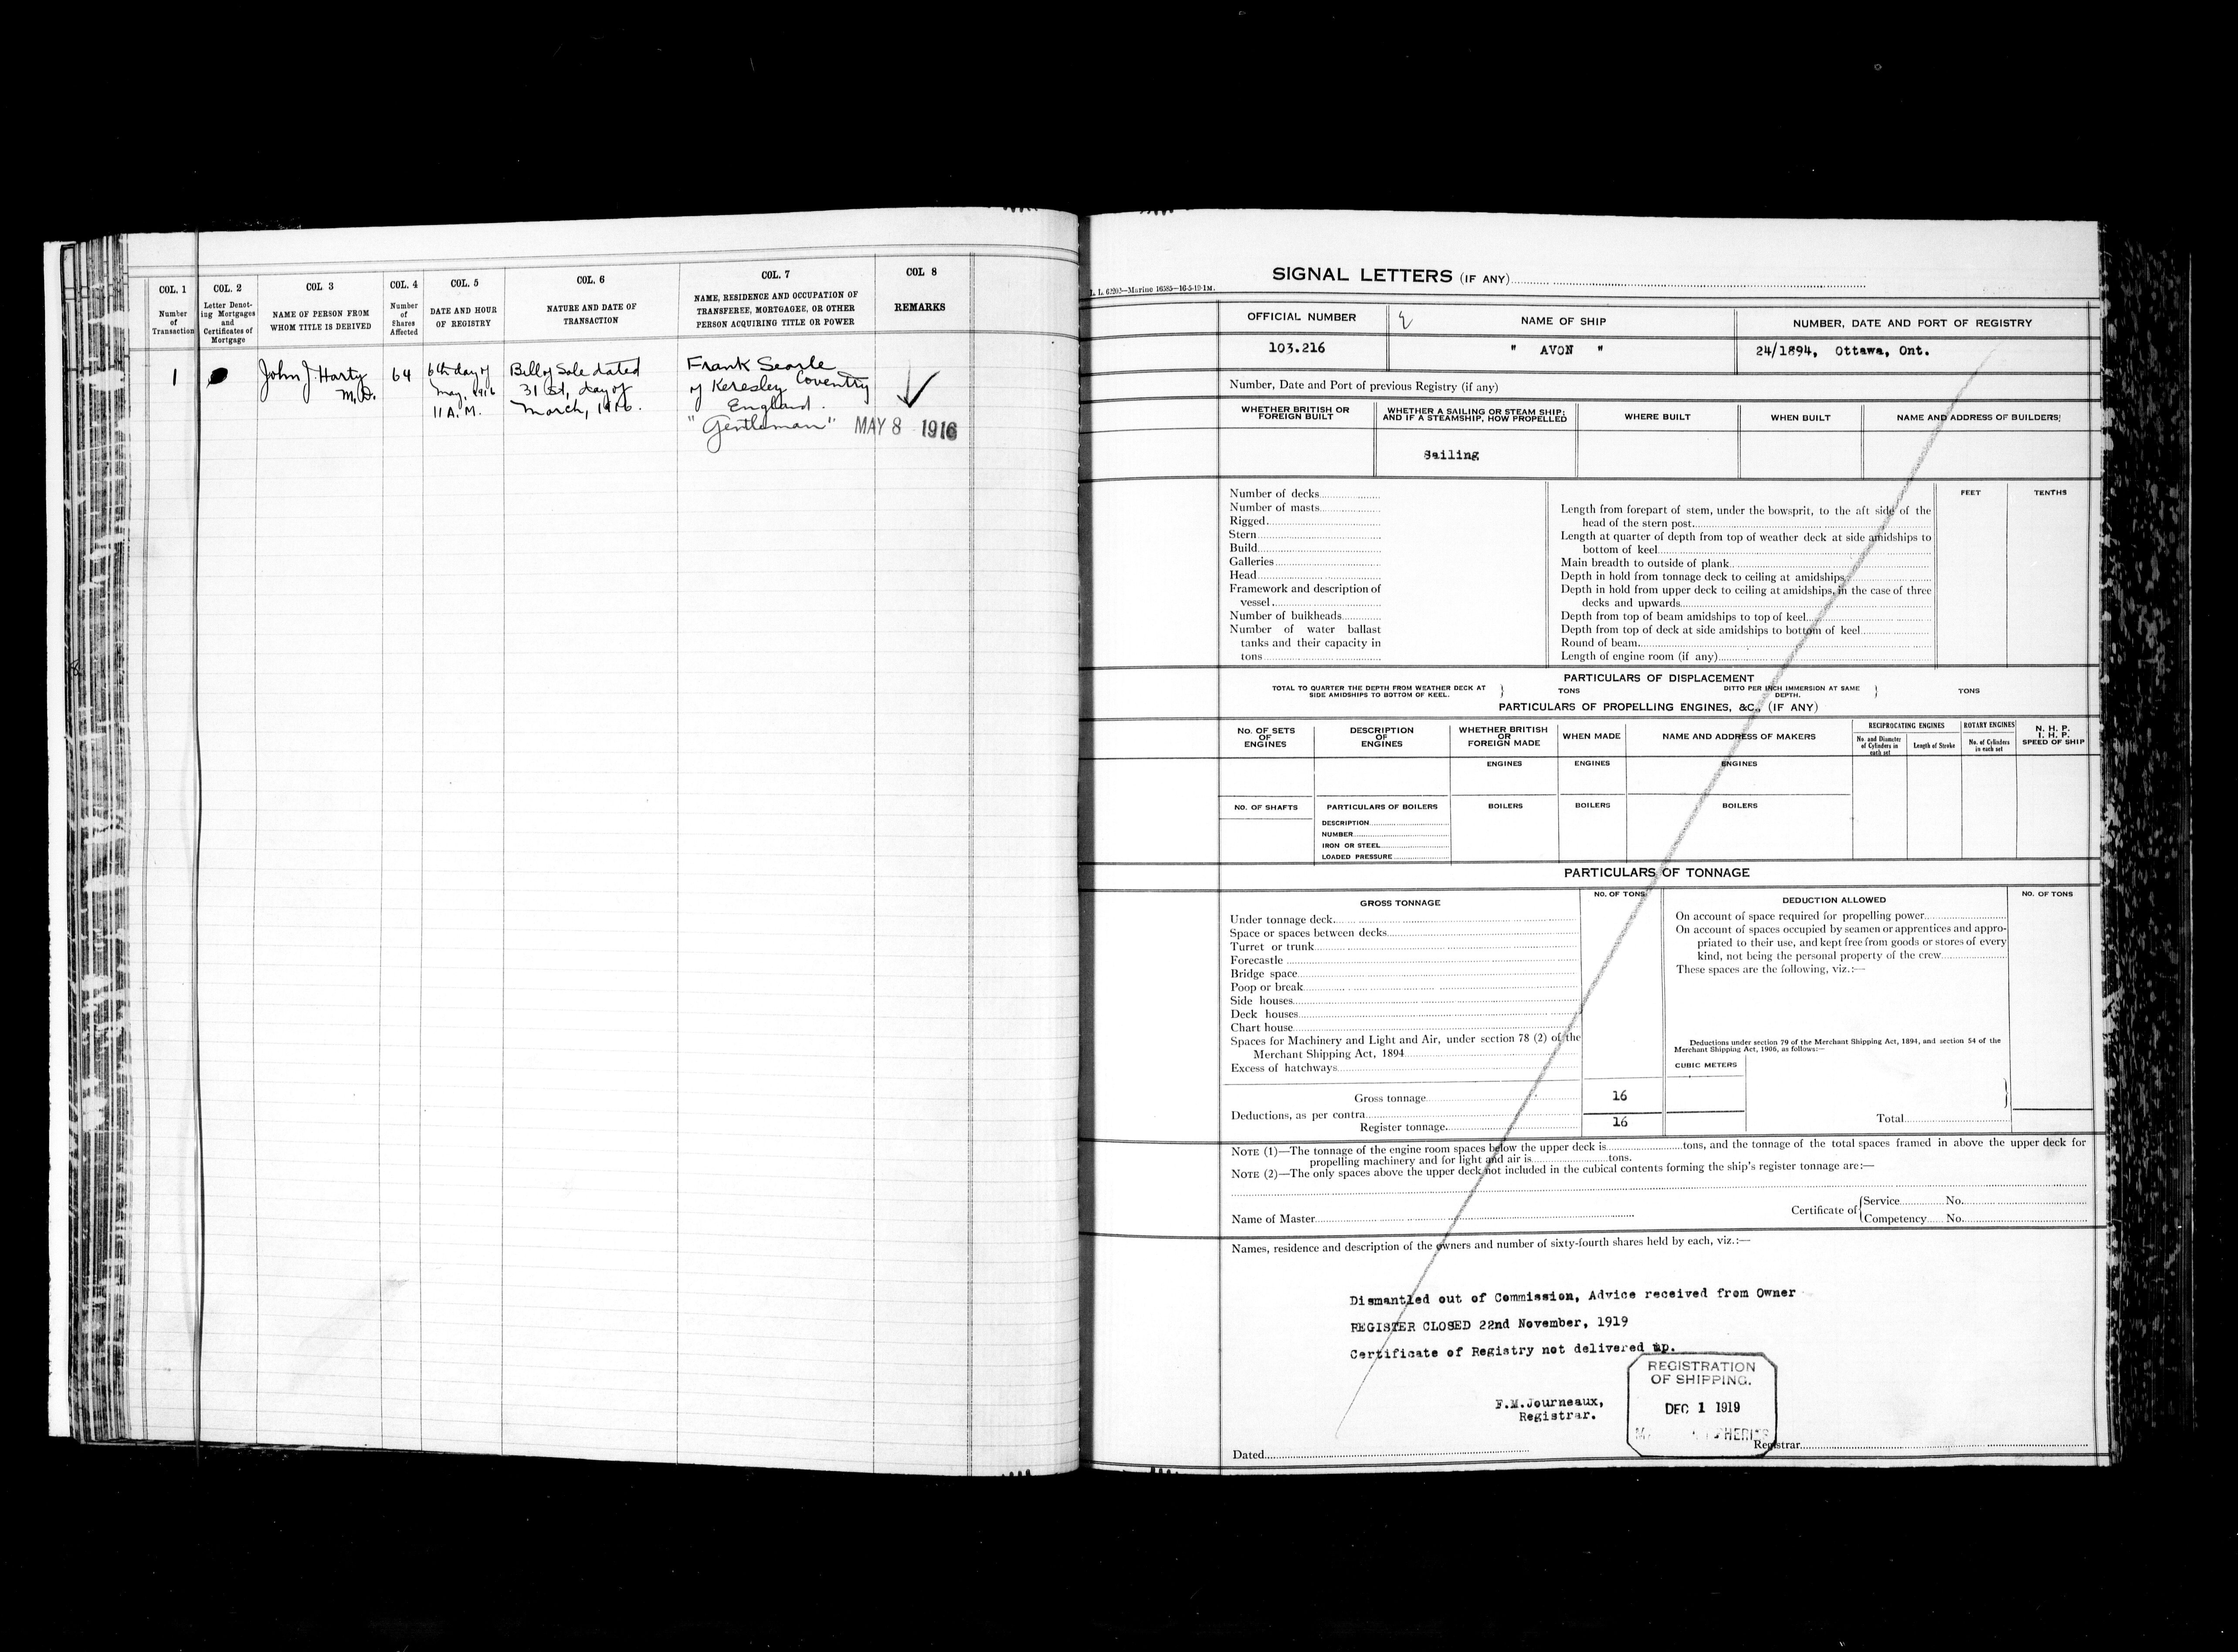 COL. 1
Number
of
Transaction
COL. 2
Letter Denot-
ing Mortgages
and
Certificates of
Mortgage
COL 3
NAME OF PERSON FROM
WHOM TITLE IS DERIVED
COL. 4
Number
of
Shares
Affected
COL. 5
DATE AND HOUR
OF REGISTRY
COL. 6
NATURE AND DATE OF
TRANSACTION
COL. 7
NAME, RESIDENCE AND OCCUPATION OF
TRANSFEREE, MORTGAGEE, OR OTHER
PERSON ACQUIRING TITLE OR POWER
COL 8
REMARKS
1
John J. Harty
M.D.
64
6th day of
May, 1916
11 A.M.
Bill of Sale dated
31 st, day of
March, 1916.
Frank Searle
of Keresley Coventry
England.
"Gentleman"
MAY 8 1916
SIGNAL LETTERS (IF ANY)
L. 6220½—Marine 16585—16-5-19-1M.
OFFICIAL NUMBER
NAME OF SHIP
NUMBER, DATE AND PORT OF REGISTRY
103.216
" AVON "
24/1894, Ottawa, Ont.
Number, Date and Port of previous Registry (if any)
WHETHER BRITISH OR
FOREIGN BUILT
WHETHER A SAILING OR STEAM SHIP;
AND IF A STEAMSHIP, HOW PROPELLED
WHERE BUILT
WHEN BUILT
NAME AND ADDRESS OF BUILDERS
Sailing
Number of decks
Number of masts
Rigged
Stern
Build
Galleries
Head
Framework and description of
vessel
Number of bulkheads
Number of water ballast
tanks and their capacity in
tons
FEET
TENTHS
Length from forepart of stem, under the bowsprit, to the aft side of the
head of the stern post
Length at quarter of depth from top of weather deck at side amidships to
bottom of keel
Main breadth to outside of plank
Depth in hold from tonnage deck to ceiling at amidships
Depth in hold from upper deck to ceiling at amidships, in the case of three
decks and upwards
Depth from top of beam amidships to top of keel
Depth from top of deck at side amidships to bottom of keel
Round of beam
Length of engine room (if any)
PARTICULARS OF DISPLACEMENT
TOTAL TO QUARTER THE DEPTH FROM WEATHER DECK AT
SIDE AMIDSHIPS TO BOTTOM OF KEEL.
TONS
DITTO PER INCH IMMERSION AT SAME
DEPTH.
TONS
PARTICULARS OF PROPELLING ENGINES, &C., (IF ANY)
No. OF SETS
OF
ENGINES
DESCRIPTION
OF
ENGINES
WHETHER BRITISH
OR
FOREIGN MADE
WHEN MADE
NAME AND ADDRESS OF MAKERS
RECIPROCATING ENGINES
No. and Diameter
of Cylinders in
each set
Length of Stroke
ROTARY ENGINES
No. of Cylinders
in each set
N. H. P.
I. H. P.
SPEED OF SHIP
ENGINES
ENGINES
ENGINES
NO. OF SHAFTS
PARTICULARS OF BOILERS
BOILERS
BOILERS
BOILERS
DESCRIPTION
NUMBER
IRON OR STEEL
LOADED PRESSURE
PARTICULARS OF TONNAGE
GROSS TONNAGE
NO. OF TONS
DEDUCTION ALLOWED
NO. OF TONS
Under tonnage deck
Space or spaces between decks
Turret or trunk
Forecastle
Bridge space
Poop or break
Side houses
Deck houses
Chart house
Spaces for Machinery and Light and Air, under section 78 (2) of the
Merchant Shipping Act, 1894
Excess of hatchways
Gross tonnage 16
Deductions, as per contra
Register tonnage 16
On account of space required for propelling power
On account of spaces occupied by seamen or apprentices and appro-
priated to their use, and kept free from goods or stores of every
kind, not being the personal property of the crew
These spaces are the following, viz.:—
Deductions under section 79 of the Merchant Shipping Act, 1894, and section 54 of the
Merchant Shipping Act, 1906, as follows:—
CUBIC METERS
Total
NOTE (1)—The tonnage of the engine room spaces below the upper deck is tons, and the tonnage of the total spaces framed in above the upper deck for
propelling machinery and for light and air is tons.
NOTE (2)—The only spaces above the upper deck not included in the cubical contents forming the ship's register tonnage are:—
Name of Master
Certificate of
Service No.
Competency No.
Names, residence and description of the owners and number of sixty-fourth shares held by each, viz.:—
Dismantled out of Commission, Advice received from Owner
REGISTER CLOSED 22nd November, 1919
Certificate of Registry not delivered up.
F.M.Journeaux,
Registrar.
REGISTRATION
OF SHIPPING.
DEC 1 1919
Dated
Registrar